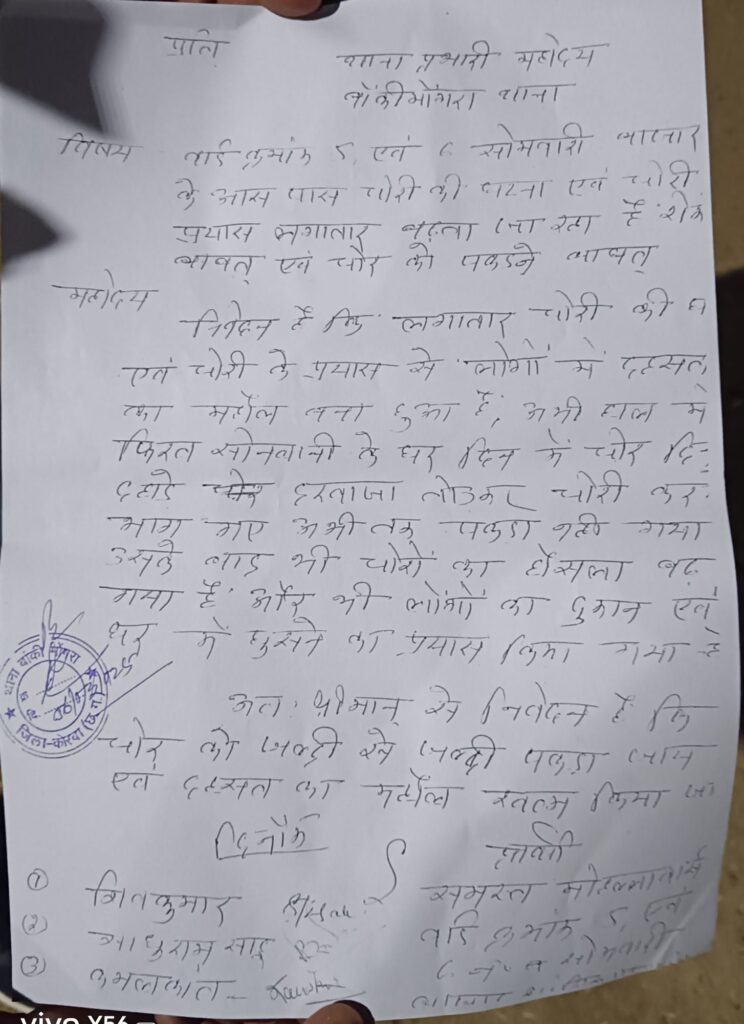 प्रति
थाना प्रभारी महोदय
बाँकीमोंगरा थाना
विषय वार्ड क्रमांक 5 एवं 6 सोमवारी बाजार
के आस पास चोरी की घटना एवं चोरी
प्रयास लगातार बढ़ता जा रहा है रोक
बाबत् एवं चोर को पकडने बाबत्
महोदय
निवेदन है कि लगातार चोरी की घ
एवं चोरी के प्रयास से लोगों में दहसत
का महौल बना हुआ है, अभी हाल में
फिरत सोनवानी के घर दिन में चोर दि
दहाडे दरवाजा तोडकर चोरी कर
भाग गए अभी तक पकडा नही गया
उसके बाद भी चोरों का हौसला बढ
गया है और भी लोंगों का दुकान एवं
घर में घुसने का प्रयास किया गया है
अतः श्रीमान् से निवेदन है कि
चोर को जल्दी से जल्दी पकडा जाय
एवं दहसत का महौल खत्म किया जा
दिनाँक
प्रार्थी
समस्त मोहल्लावासी
वार्ड क्रमांक 5 एवं
6 सोमवारी
① शिवकुमार
(2) साहू
(3) कमलकांत
थाना बांकी मोंगरा
जिला-कोरबा (छ.ग.)
vivo Y56